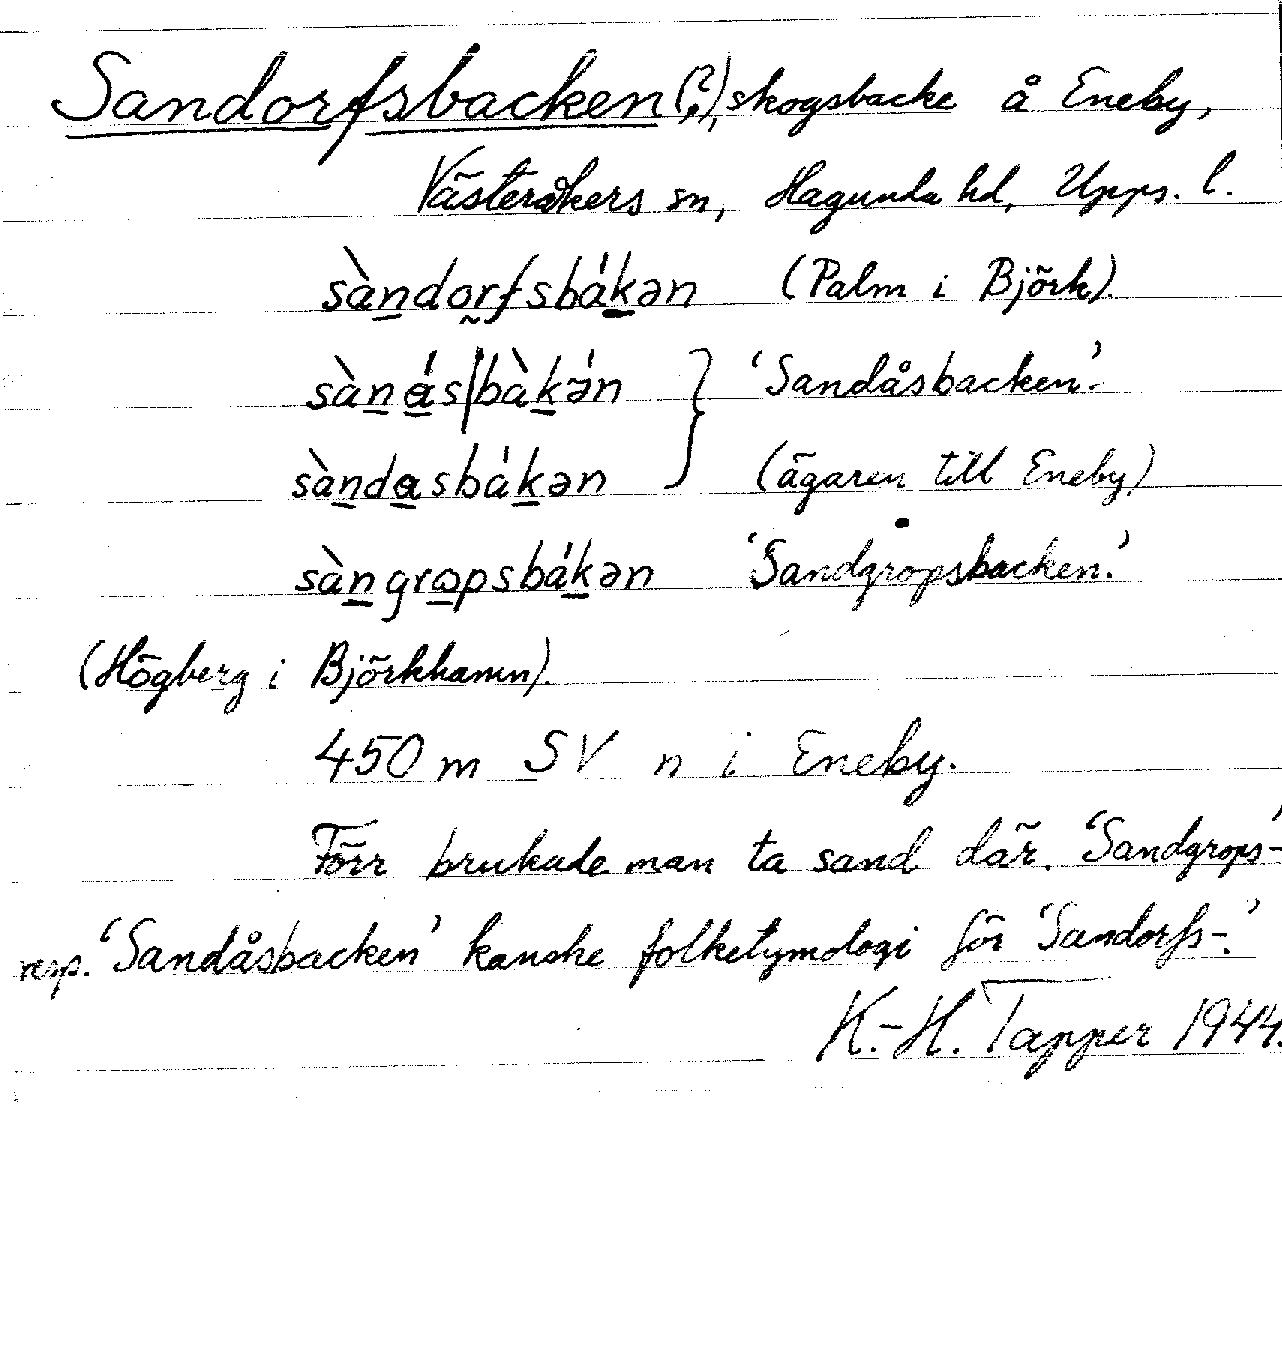 Sandorfsbacken (?), skogsbacke å Eneby,
Västeråkers sn, Hagunda hd, Upps. l.
sàndorfsbákən (Palm i Björk).
sànás|bàkə́n } 'Sandåsbacken'.
sàndasbákən (ägaren till Eneby)
sàngropsbákən 'Sandgropsbacken.'
(Högberg i Björkhamn).
450 m SV n i Eneby.
Förr brukade man ta sand där. 'Sandgrops'-
resp. 'Sandåsbacken' kanske folketymologi för 'Sandorfs-'.
K.-H. Tapper 1944.